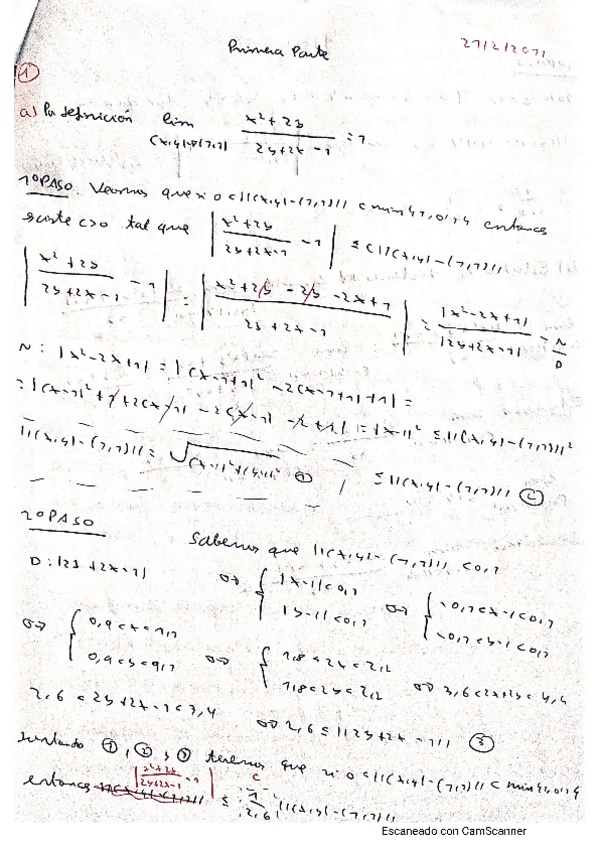 Primera Parte
27/2/2071
1
a) Por definición lim x²+2y / 2y+2x-1 = 1
(x,y)→(1,1)
1º PASO. Veamos que si 0<||(x,y)-(1,1)||< min{1, 0,1} entonces
existe c>0 tal que | x²+2y / 2y+2x-1 - 1 | ≤ c||(x,y)-(1,1)||
| x²+2y / 2y+2x-1 - 1 | = | x²+2y-2y-2x+1 / 2y+2x-1 | = |x²-2x+1| / |2y+2x-1| = N / D
N: |x²-2x+1| = |(x-1+1)²-2(x-1+1)+1| =
= |(x-1)²+1+2(x-1)-2(x-1)-2+1| = |x-1|² ≤ ||(x,y)-(1,1)||²
||(x,y)-(1,1)|| = √(x-1)²+(y-1)² ① ≤ ||(x,y)-(1,1)|| ②
2º PASO
Sabemos que ||(x,y)-(1,1)|| < 0,1
D: |2y+2x-1| ⇒ { |x-1|<0,1 |y-1|<0,1 ⇒ { -0,1<x-1<0,1 -0,1<y-1<0,1
⇒ { 0,9<x<1,1 0,9<y<1,1 ⇒ { 1,8<2x<2,2 1,8<2y<2,2 ⇒ 3,6<2x+2y<4,4
2,6<2y+2x-1<3,4 ⇒ 2,6 ≤ |2y+2x-1| ③
Juntando ①, ②, y ③ tenemos que si 0<||(x,y)-(1,1)||< min{1, 0,1}
entonces | x²+2y / 2y+2x-1 - 1 | ≤ c 1 / 2,6 ||(x,y)-(1,1)||
Escaneado con CamScanner